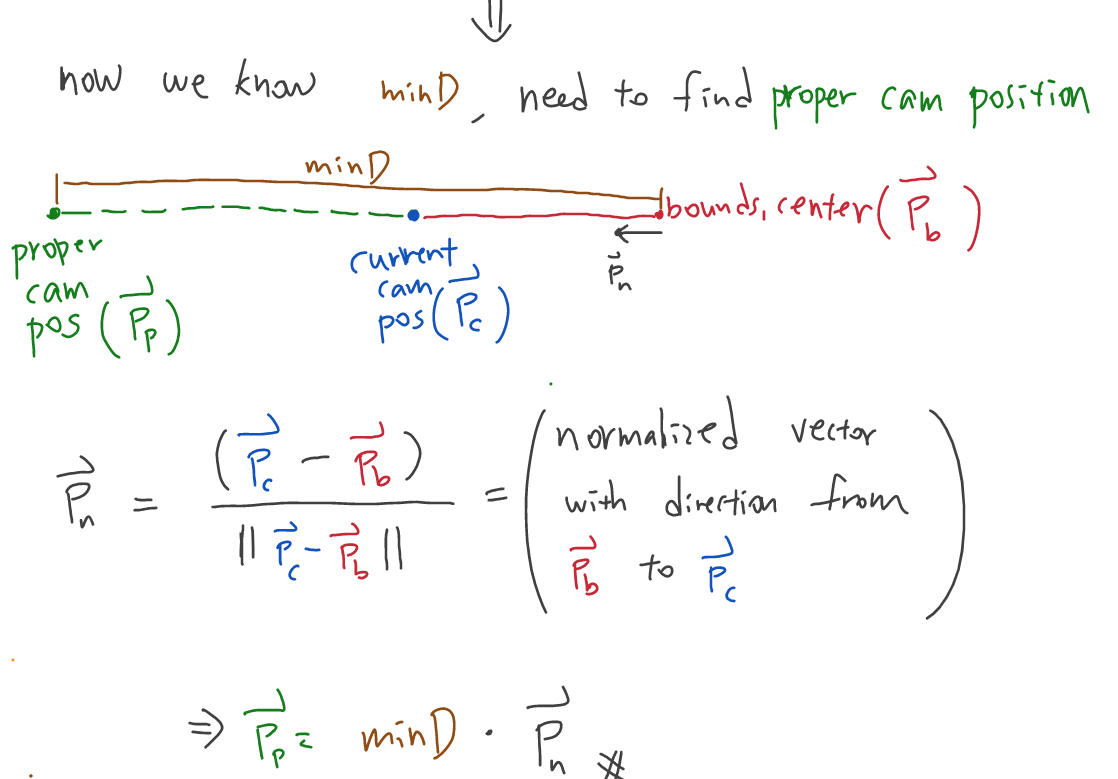 ⇓
now we know minD, need to find proper cam position
minD
bounds.center(P⃗_b)
P⃗_n
proper cam pos (P⃗_p)
current cam pos (P⃗_c)
P⃗_n = (P⃗_c − P⃗_b) / ||P⃗_c − P⃗_b|| = (normalized vector
with direction from
P⃗_b to P⃗_c)
⇒ P⃗_p = minD · P⃗_n #